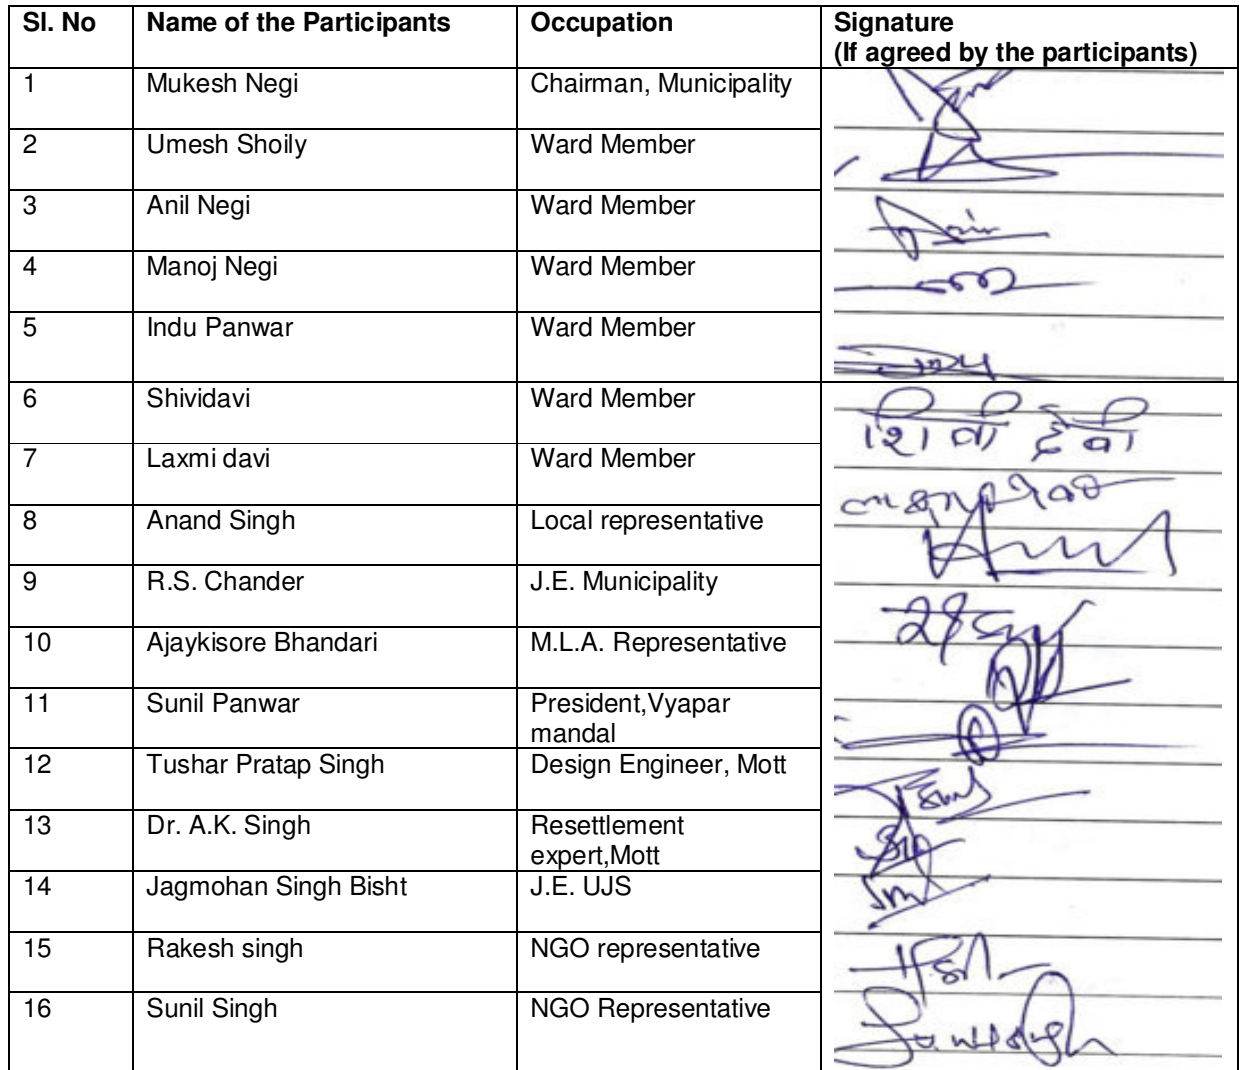 Sl. No Name of the Participants Occupation Signature
(If agreed by the participants)
1 Mukesh Negi Chairman, Municipality
2 Umesh Shoily Ward Member
3 Anil Negi Ward Member
4 Manoj Negi Ward Member
5 Indu Panwar Ward Member
6 Shividavi Ward Member शिवी देवी
7 Laxmi davi Ward Member
8 Anand Singh Local representative
9 R.S. Chander J.E. Municipality
10 Ajaykisore Bhandari M.L.A. Representative
11 Sunil Panwar President,Vyapar
mandal
12 Tushar Pratap Singh Design Engineer, Mott
13 Dr. A.K. Singh Resettlement
expert,Mott
14 Jagmohan Singh Bisht J.E. UJS
15 Rakesh singh NGO representative
16 Sunil Singh NGO Representative